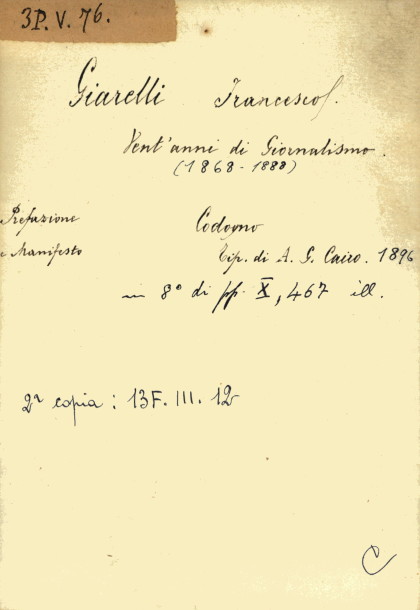 3P. V. 76.
Giarelli Francesco.
Vent'anni di Giornalismo.
(1868-1888)
Prefazione
e Manifesto
Codogno
Tip. di A. G. Cairo. 1896
in 8° di pp. X, 467 ill.
2ª copia : 13F. III. 12
C